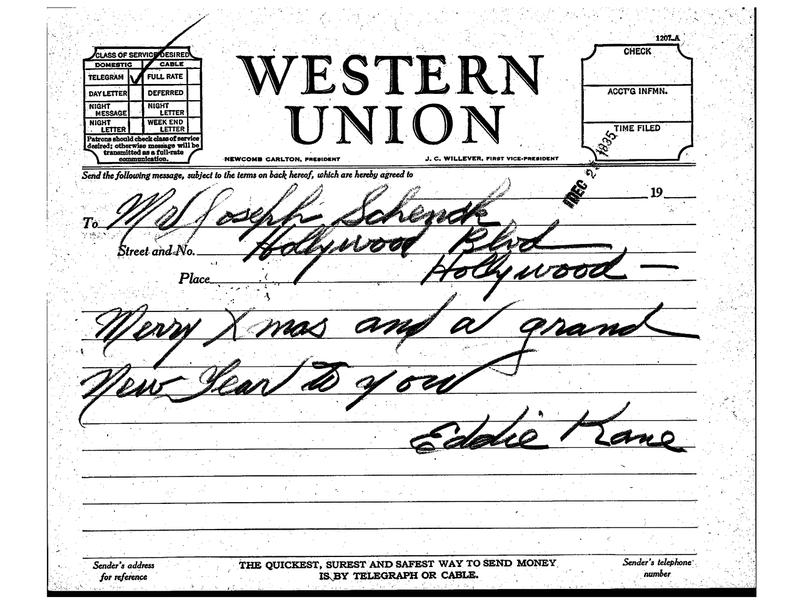 1207-A
CLASS OF SERVICE DESIRED
DOMESTIC CABLE
TELEGRAM FULL RATE
DAY LETTER DEFERRED
NIGHT MESSAGE NIGHT LETTER
NIGHT LETTER WEEK END LETTER
Patrons should check class of service
desired; otherwise message will be
transmitted as a full-rate
communication.
WESTERN
UNION
NEWCOMB CARLTON, PRESIDENT J. C. WILLEVER, FIRST VICE-PRESIDENT
CHECK
ACCT'G INFMN.
TIME FILED
DEC 1935
Send the following message, subject to the terms on back hereof, which are hereby agreed to
19
To Mr Joseph Schenck
Street and No. Hollywood Blvd
Place Hollywood —
Merry Xmas and a grand
New Year to you
Eddie Kane
Sender's address
for reference
THE QUICKEST, SUREST AND SAFEST WAY TO SEND MONEY
IS BY TELEGRAPH OR CABLE.
Sender's telephone
number